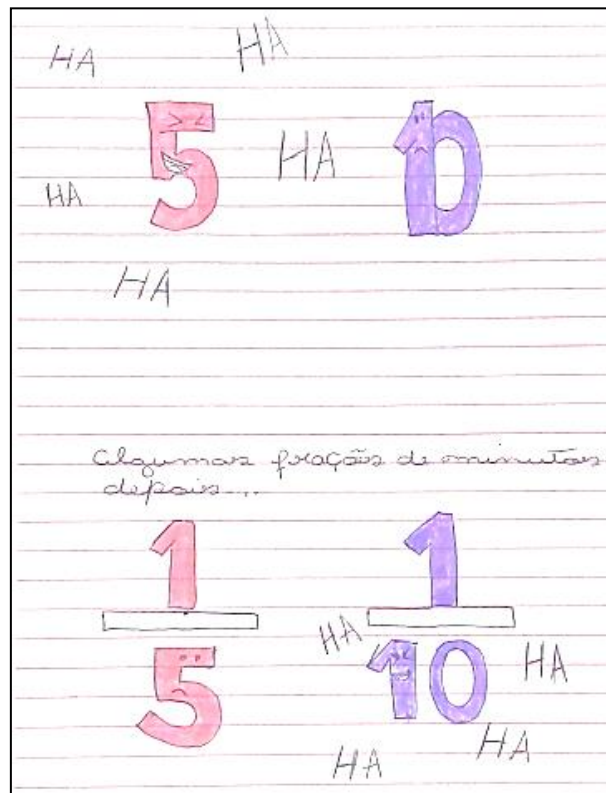 HA
HA
5
HA
10
HA
HA
Algumas frações de minutos
depois...
1
1
5
HA
10
HA
HA
HA